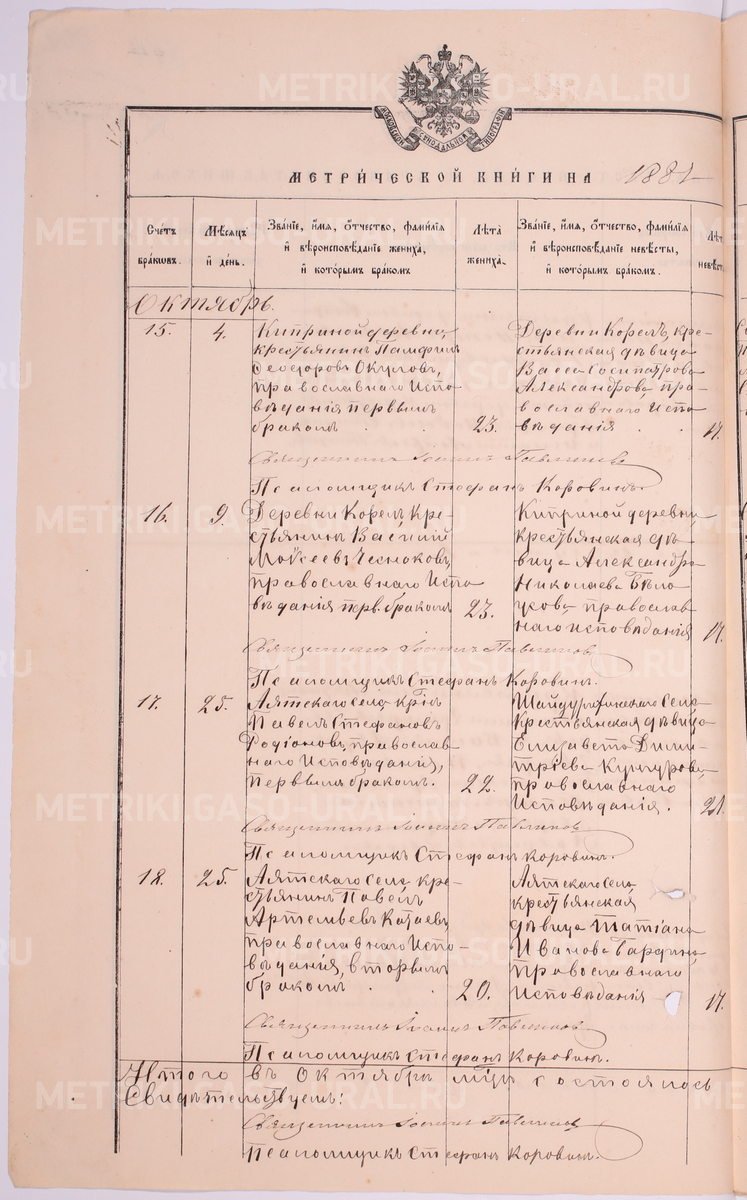 МОСКОВСКОЙ СѴНОДАЛЬНОЙ ТИПОГРАФІИ
МЕТРИ́ЧЕСКОЙ КНИ́ГИ НА 1881
Сче́тъ бра́кѡвъ.
Мѣ́сяцъ и҆ де́нь.
Зва́нїе, и҆́мѧ, ѻ҆́тчество, фами́лїѧ
и҆ вѣроисповѣ́данїе жениха̀,
и҆ кото́рымъ бра́комъ
Лѣ́та жениха̀.
Зва́нїе, и҆́мѧ, ѻ҆́тчество, фами́лїѧ
и҆ вѣроисповѣ́данїе невѣ́сты,
и҆ кото́рымъ бра́комъ.
Лѣт невѣст
Октябрь.
15.
4.
Киприной деревни,
крестьянинъ Памфилъ
Ѳеодоровъ Окуловъ,
православнаго Испо-
вѣданія первымъ
бракомъ
23.
Деревни Корелъ, кре-
стьянская дѣвица
Васса Сосипатрова
Александрова пра-
вославнаго Испо-
вѣданія
17.
Священникъ Іоаннъ
Псаломщикъ Стефанъ Коровинъ.
16.
9.
Деревни Корелъ кре-
стьянинъ Василій
Моисеевъ Чесноковъ,
православнаго Испо-
вѣданія перв. бракомъ
23.
Киприной деревни
крестьянская дѣ-
вица Александра
Николаева Бѣло-
усова православ-
наго исповѣданія
17.
Священникъ Іоаннъ
Псаломщикъ Стефанъ Коровинъ.
17.
25.
Аятскаго села кр҃нъ
Павелъ Стефановъ
Родіоновъ, православ-
наго Исповѣданія,
первымъ бракомъ.
22.
Шайдурихинскаго Села
Крестьянская дѣвица
Елизавета Дими-
тріева Кунгурова,
православнаго
Исповѣданія.
21.
Священникъ Іоаннъ
Псаломщикъ Стефанъ Коровинъ.
18.
25.
Аятскаго Села кре-
стьянинъ Павелъ
Артемьевъ Катаевъ,
православнаго Испо-
вѣданія, вторымъ
бракомъ
20.
Аятскаго села
крестьянская
дѣвица Татіана
Иванова
православнаго
Исповѣданія
17.
Священникъ Іоаннъ
Псаломщикъ Стефанъ Коровинъ.
Итого въ Октябрѣ м҃цѣ состоялось
Свидѣтельствуемъ:
Священникъ Іоаннъ
Псаломщикъ Стефанъ Коровинъ.
METRIKI.GASO-URAL.RU